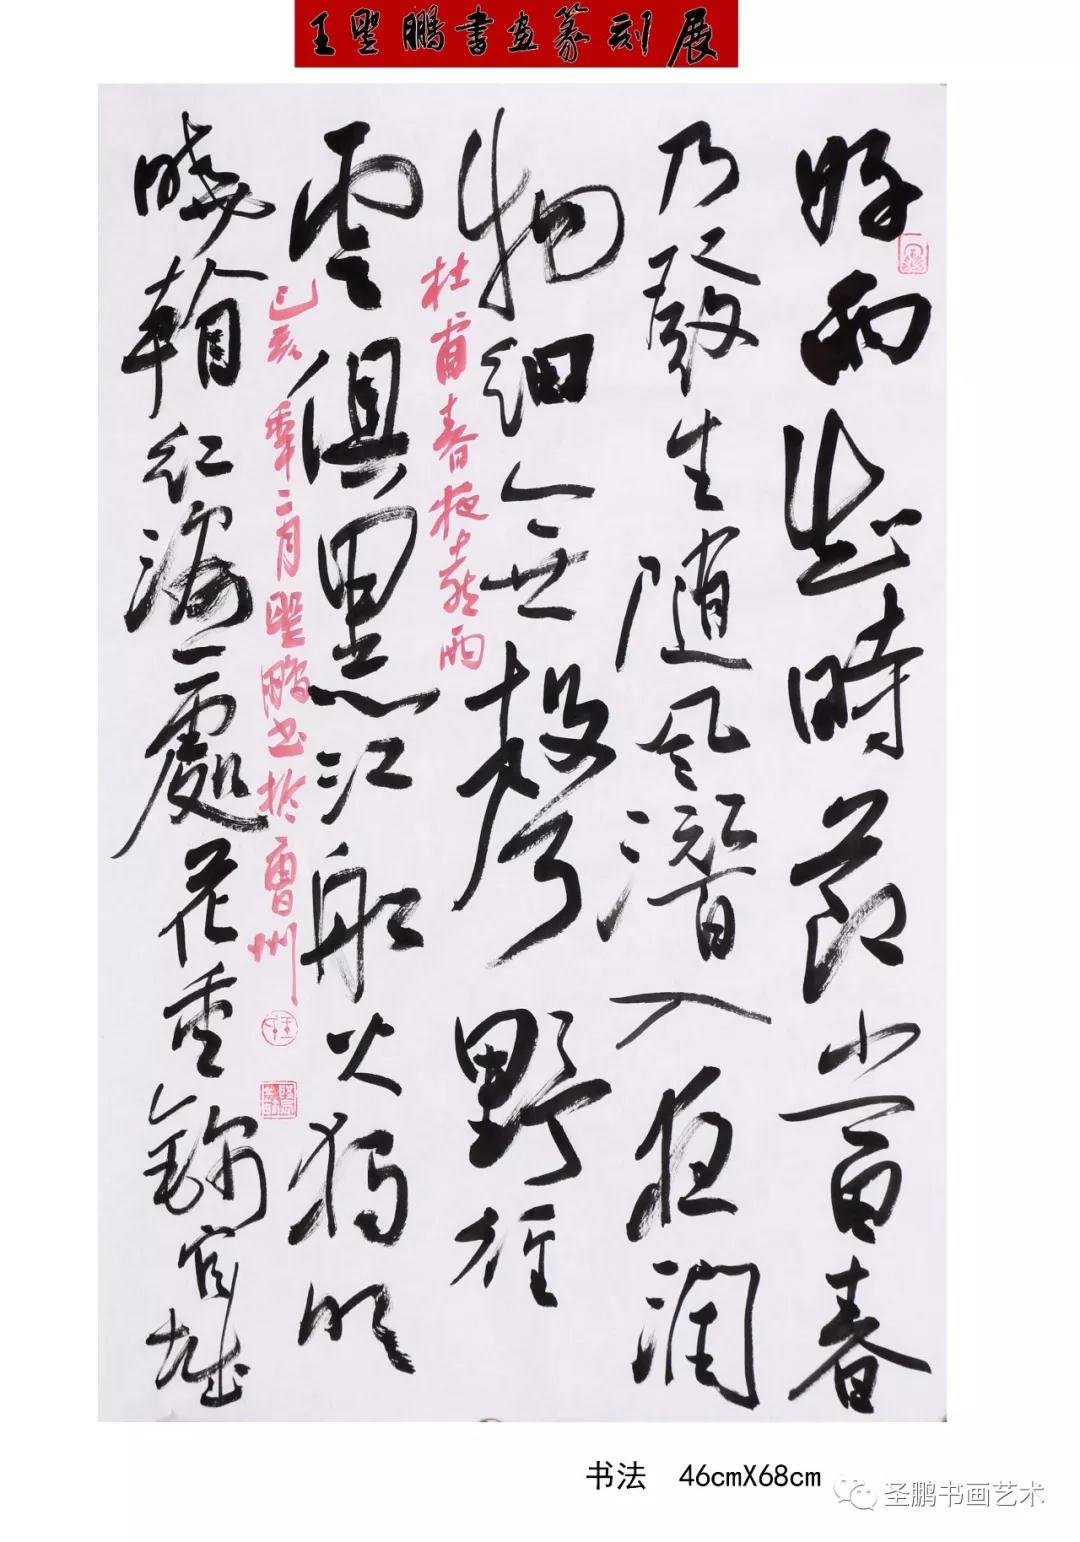 王聖鵬書畫篆刻展
好雨知時節當春
乃發生随風潛入夜潤
物細無聲野徑
杜甫春夜喜雨
雲俱黑江船火獨明
己亥年二月聖鵬书於曹州
曉看紅濕處花重錦官城
书法 46cmX68cm
圣鹏书画艺术